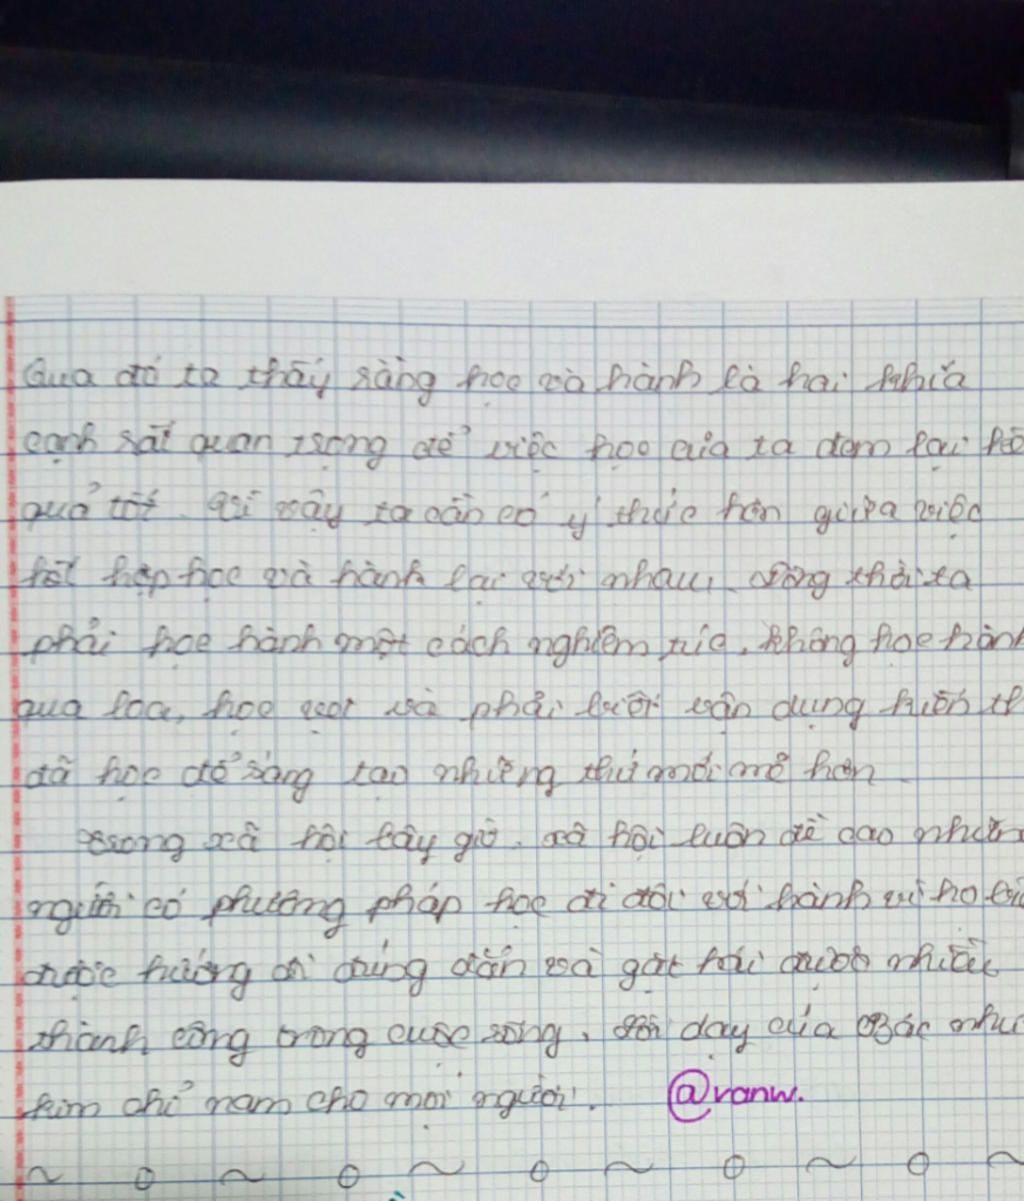 Qua đó ta thấy rằng học và hành là hai khía
cạnh rất quan trọng để việc học của ta đem lại kế
quả tốt. Vì vậy ta cần có ý thức hơn giữa việc
kết hợp học và hành lại với nhau, đồng thời ta
phải học hành một cách nghiêm túc, không học hành
qua loa, học vẹt và phải biết vận dụng kiến th
đã học để sáng tạo những thứ mới mẻ hơn.
Trong xã hội bây giờ, xã hội luôn đề cao nhữn
người có phương pháp học đi đôi với hành vì họ
được hướng đi đúng đắn và gặt hái được nhiều
thành công trong cuộc sống. Lời dạy của Bác như
kim chỉ nam cho mọi người.
@ranw.